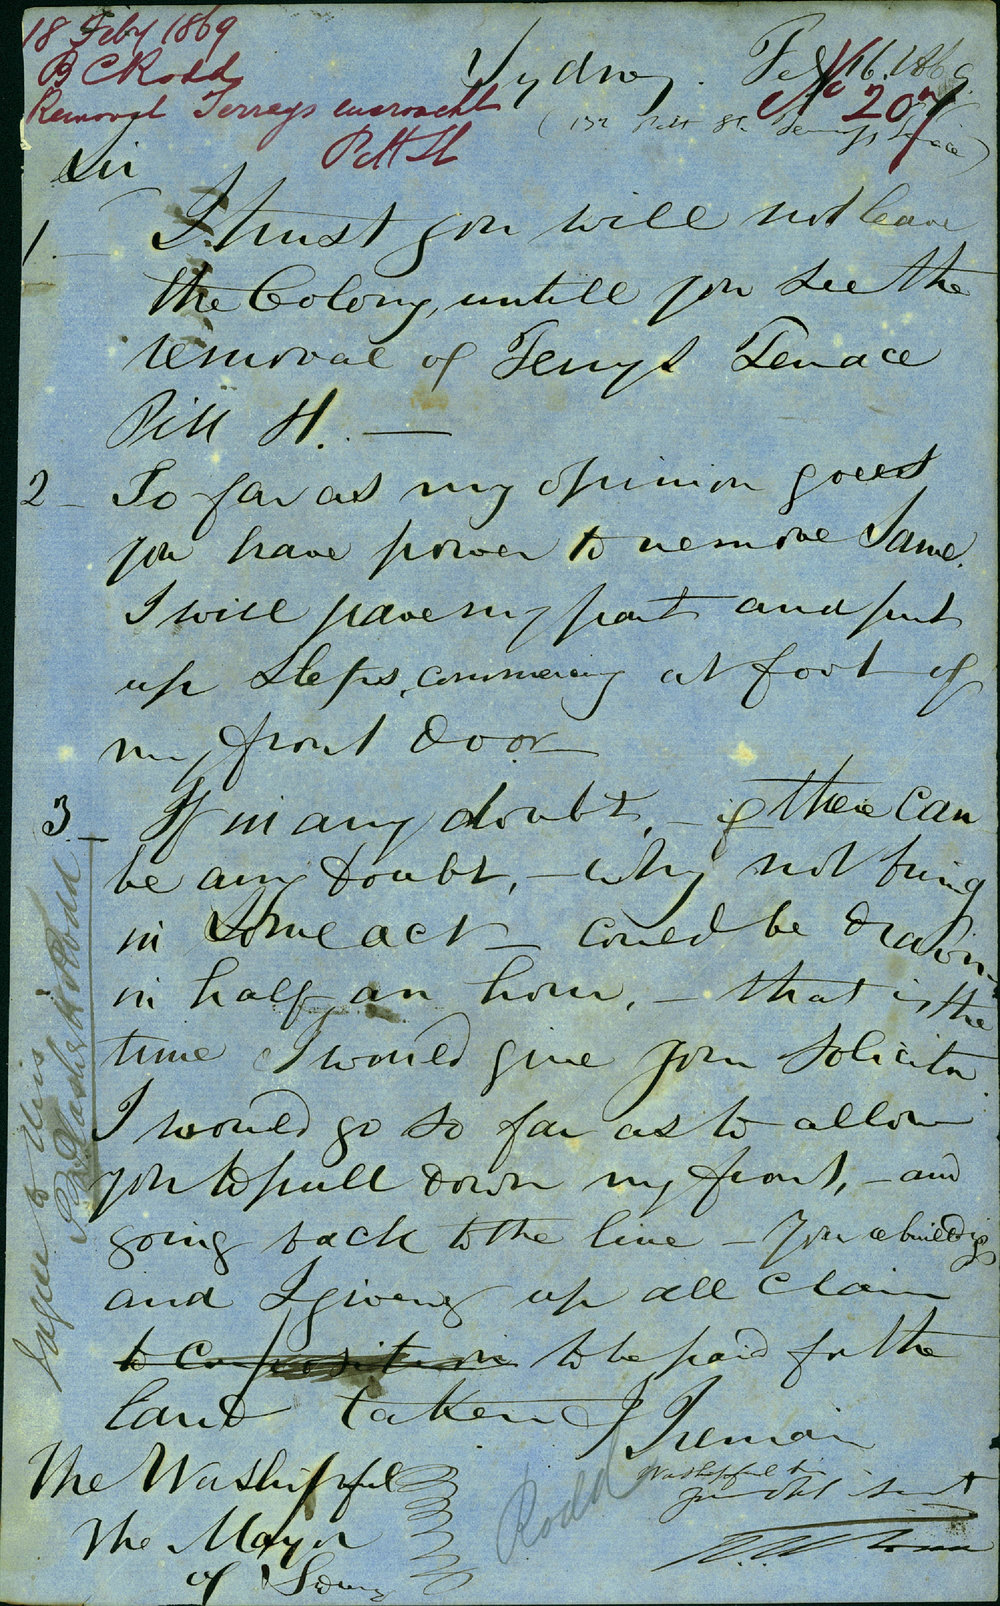 18 Feby 1869
B C Rodd
Removal Terrys encroacht
Pitt St
No 207
Sydney. Feb 16. 1869
(132 Pitt St. Terrys Terrace)
Sir
1. I trust you will not leave
the Colony, untill you see the
removal of Terrys Terrace
Pitt St. —
2 - So far as my opinion goes
you have power to remove same.
I will pave my part and put
up steps, commencing at foot of
my front door
3 - If in any doubt, - if there can
be any doubt, - why not bring
in some act - could be drawn
in half an hour, - that is the
time I would give your Solicitor
I would go so far as to allow
you to pull down my front, - and
going back to the line - you rebuilding
and I giving up all claim
to be paid for the
land taken
I Remain
Worshipful Sir
your Obt Servt
The Worshipful
The Mayor
of Sydney
Rodd